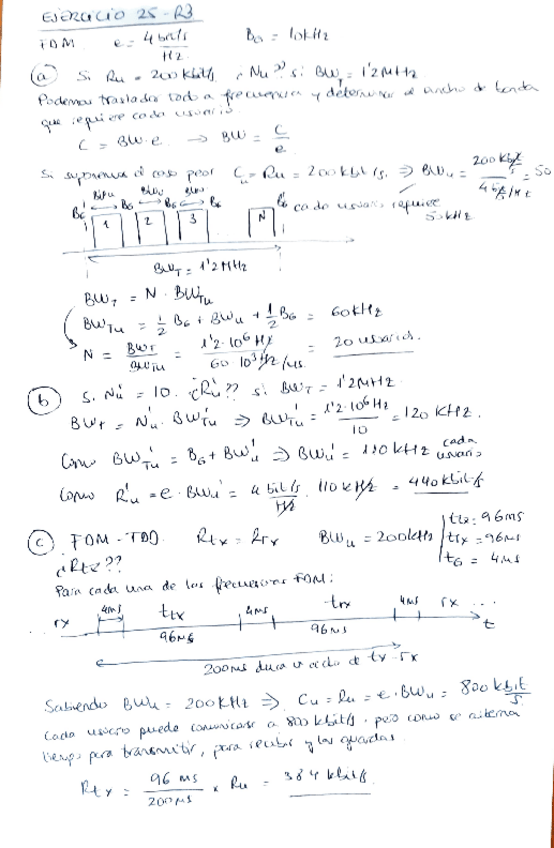 Ejercicio 25 - R3
FDM. e = 4 bit/s/Hz B_G = 10kHz
(a) Si Ru = 200 kbit/s ¿Nu?? si BW_T = 1'2 MHz
Podemos trasladar todo a frecuencia y determinar el ancho de banda
que requiere cada usuario.
C = BW·e → BW = C/e
Si suponemos el caso peor Cu = Ru = 200 kbit/s. ⇒ BWu = 200 kbit/s / 4 bit/s/Hz = 50
cada usuario requiere
50kHz
B_G BWu B_G BWu B_G BWu B_G B_G
1 2 3 N
BW_T = 1'2 MHz
BW_T = N · BW_Tu
BW_Tu = 1/2 B_G + BWu + 1/2 B_G = 60 kHz
N = BW_T / BW_Tu = 1'2·10^6 Hz / 60·10^3 Hz/us = 20 usuarios.
(b) Si Nu' = 10. ¿Ru'?? si BW_T = 1'2MHz
BW_T = N'u · BW'_Tu ⇒ BW'_Tu = 1'2·10^6 Hz / 10 = 120 KHz.
Como BW'_Tu = B_G + BW'u ⇒ BW'u = 110 kHz cada usuario
Como R'u = e · BWu' = 4 bit/s/Hz · 110 kHz = 440 kbit/s
(c) FDM-TDD. Rtx = Rrx BWu = 200kHz ttx = 96ms
trx = 96ms
t_G = 4ms
¿Rtx??
Para cada una de las frecuencias FDM:
rx 4ms ttx 4ms trx 4ms rx ...
96ms 96ms t
200ms dura un ciclo de tx-rx
Sabiendo BWu = 200 KHz ⇒ Cu = Ru = e·BWu = 800 kbit/s
Cada usuario puede comunicarse a 800 kbit/s. pero como se alterna
tiempo para transmitir, para recibir y las guardas
Rtx = 96 ms / 200ms × Ru = 384 kbit/s.